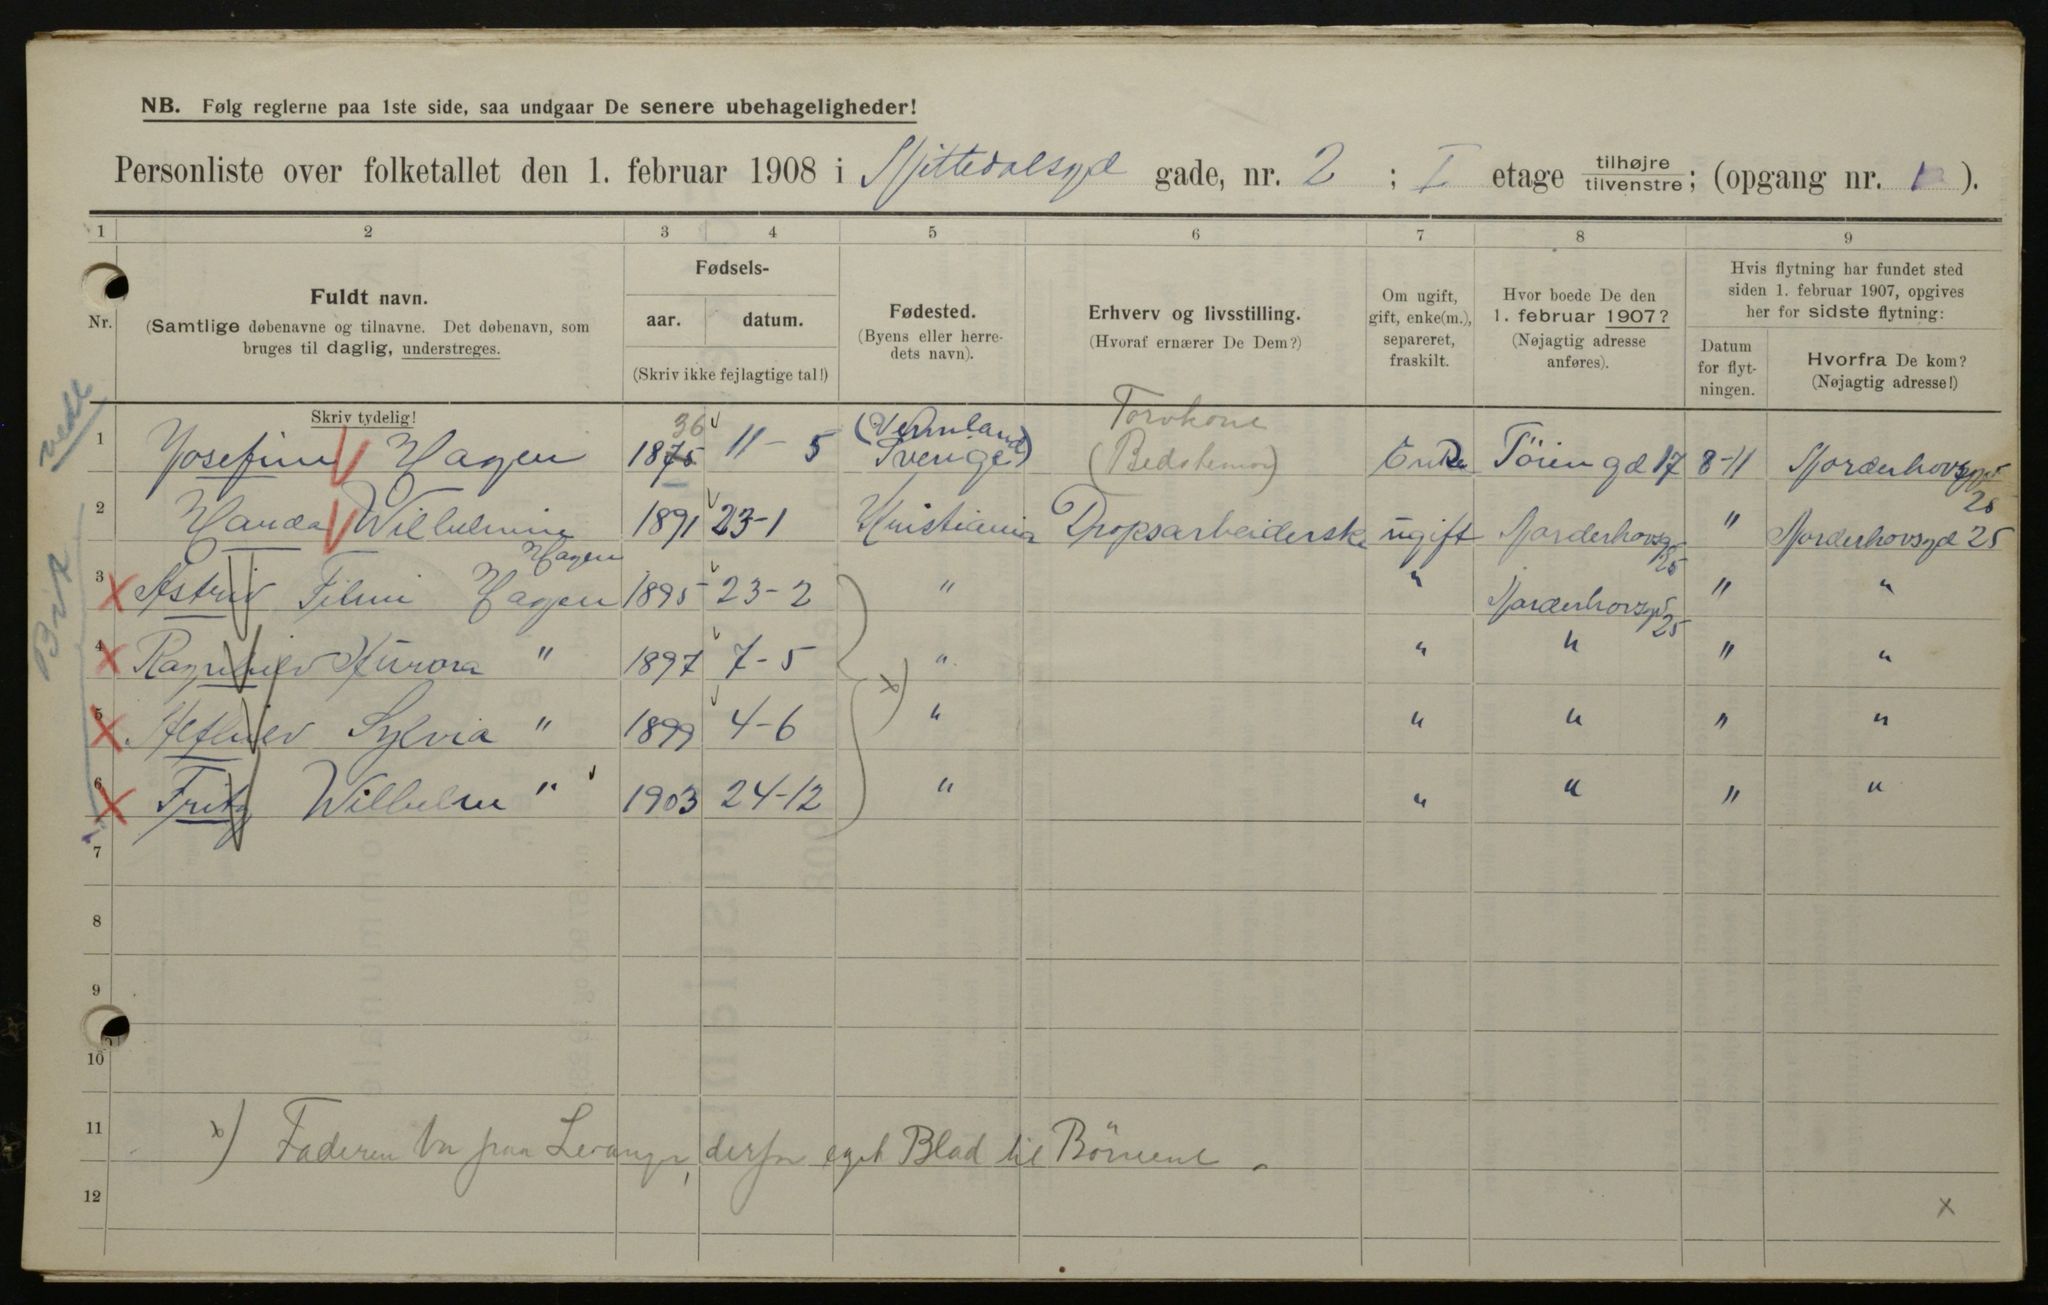 NB. Følg reglerne paa 1ste side, saa undgaar De senere ubehageligheder!
Personliste over folketallet den 1. februar 1908 i Nittedalsgd gade, nr. 2 ; I etage tilhøjre / tilvenstre; (opgang nr. 1 ).
1 2 3 4 5 6 7 8 9
Nr.
Fuldt navn.
(Samtlige døbenavne og tilnavne. Det døbenavn, som
bruges til daglig, understreges.
Skriv tydelig!
Fødsels-
aar. datum.
(Skriv ikke fejlagtige tal!)
Fødested.
(Byens eller herre-
dets navn).
Erhverv og livsstilling.
(Hvoraf ernærer De Dem?)
Om ugift,
gift, enke(m.),
separeret,
fraskilt.
Hvor boede De den
1. februar 1907?
(Nøjagtig adresse
anføres).
Hvis flytning har fundet sted
siden 1. februar 1907, opgives
her for sidste flytning:
Datum
for flyt-
ningen.
Hvorfra De kom?
(Nøjagtig adresse!)
36 (Vermland) Torvkone
1 Josefine Hagen 1875 11-5 Sverige (Bedstemor) Enke Töiengd 17 8-11 Norderhovsgd
25
2 Wilhelmine 1891 23-1 Kristiania Dropsarbeiderske ugift Norderhovsgd " Norderhovsgd 25
Hagen 25
3 Astrid Hagen 1895 23-2 " " Norderhovsgd " "
25
4 Ragnhild Aurora " 1897 7-5 " " " " "
5 Alfhild Sylvia " 1899 4-6 " " " " "
x)
6 Fritz Wilhelm " 1903 24-12 " " " " "
7
8
9
10
11 x) Faderen bor paa Levanger, derfor eget Blad til Börnene.
12
x